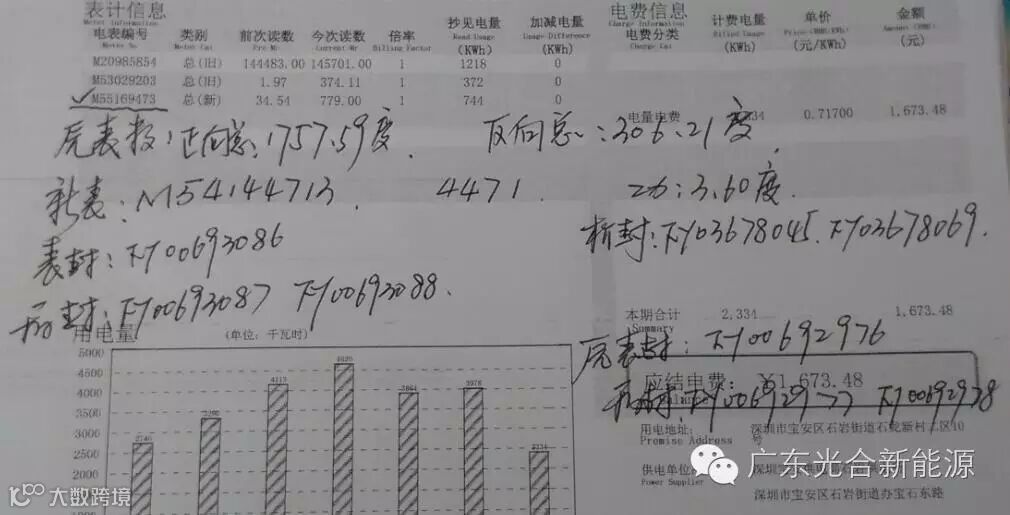 表计信息
Meter Information
电费信息
Charge Information
电表编号 类别 前次读数 今次读数 倍率 抄见电量 加减电量
Meter No Meter Cat Pre Mr Current Mr Billing Factor Read Usage (KWh) Usage Difference (KWh)
电费分类 计费电量 单价 金额
Charge Cat Billed Usage (KWh) Price (元/KWh) (元)
M20985854 总(旧) 144483.00 145701.00 1 1218 0
M53029203 总(旧) 1.97 374.11 1 372 0
M55169473 总(新) 34.54 779.00 1 744 0
电量电费 2,334 0.71700 1,673.48
原表度:正向总:1757.59度. 反向总:306.21度.
新表:M54144713. 4471 26:3.60度.
表封:TY00693086
柜封:TY03678045.TY03678069.
TY00693087 TY00693088.
本期合计 2,334 1,673.48
Summary
用电量 (单位:千瓦时)
原表封:TY00692976
应结电费:¥1,673.48
TY00692977 TY00692978
5000
4500
4000
3500
3000
2500
2000
1500
2740 4213 4620 3864 3978 2334
用电地址: 深圳市宝安区石岩街道石龙新村二区10号
Premise Address
供电单位
Power Supplier
深圳市宝安区石岩街道办宝石东路
广东光合新能源
大数跨境